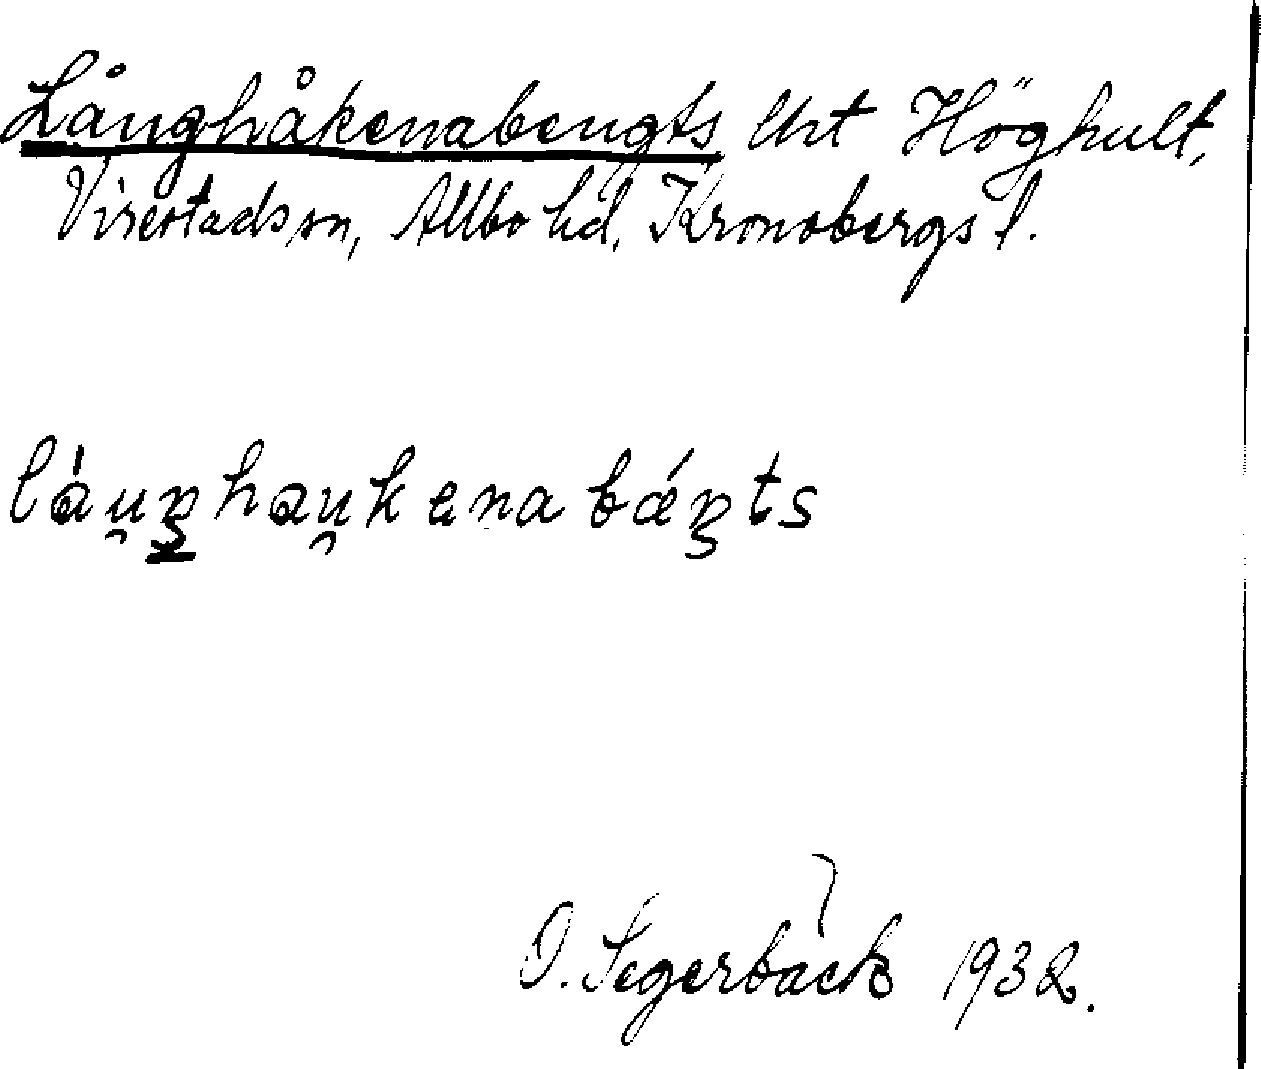 Långhåkenabengts lht Höghult,
Virestads sn, Allbo hd, Kronobergs l.
làu̯ŋhau̯kenabáŋts
O. Segerbäck 1932.